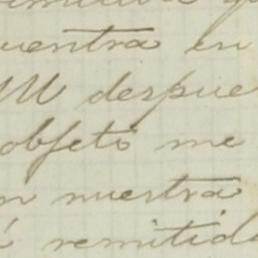 uentra en
M despue
objeto me
n nuestra
é remitid